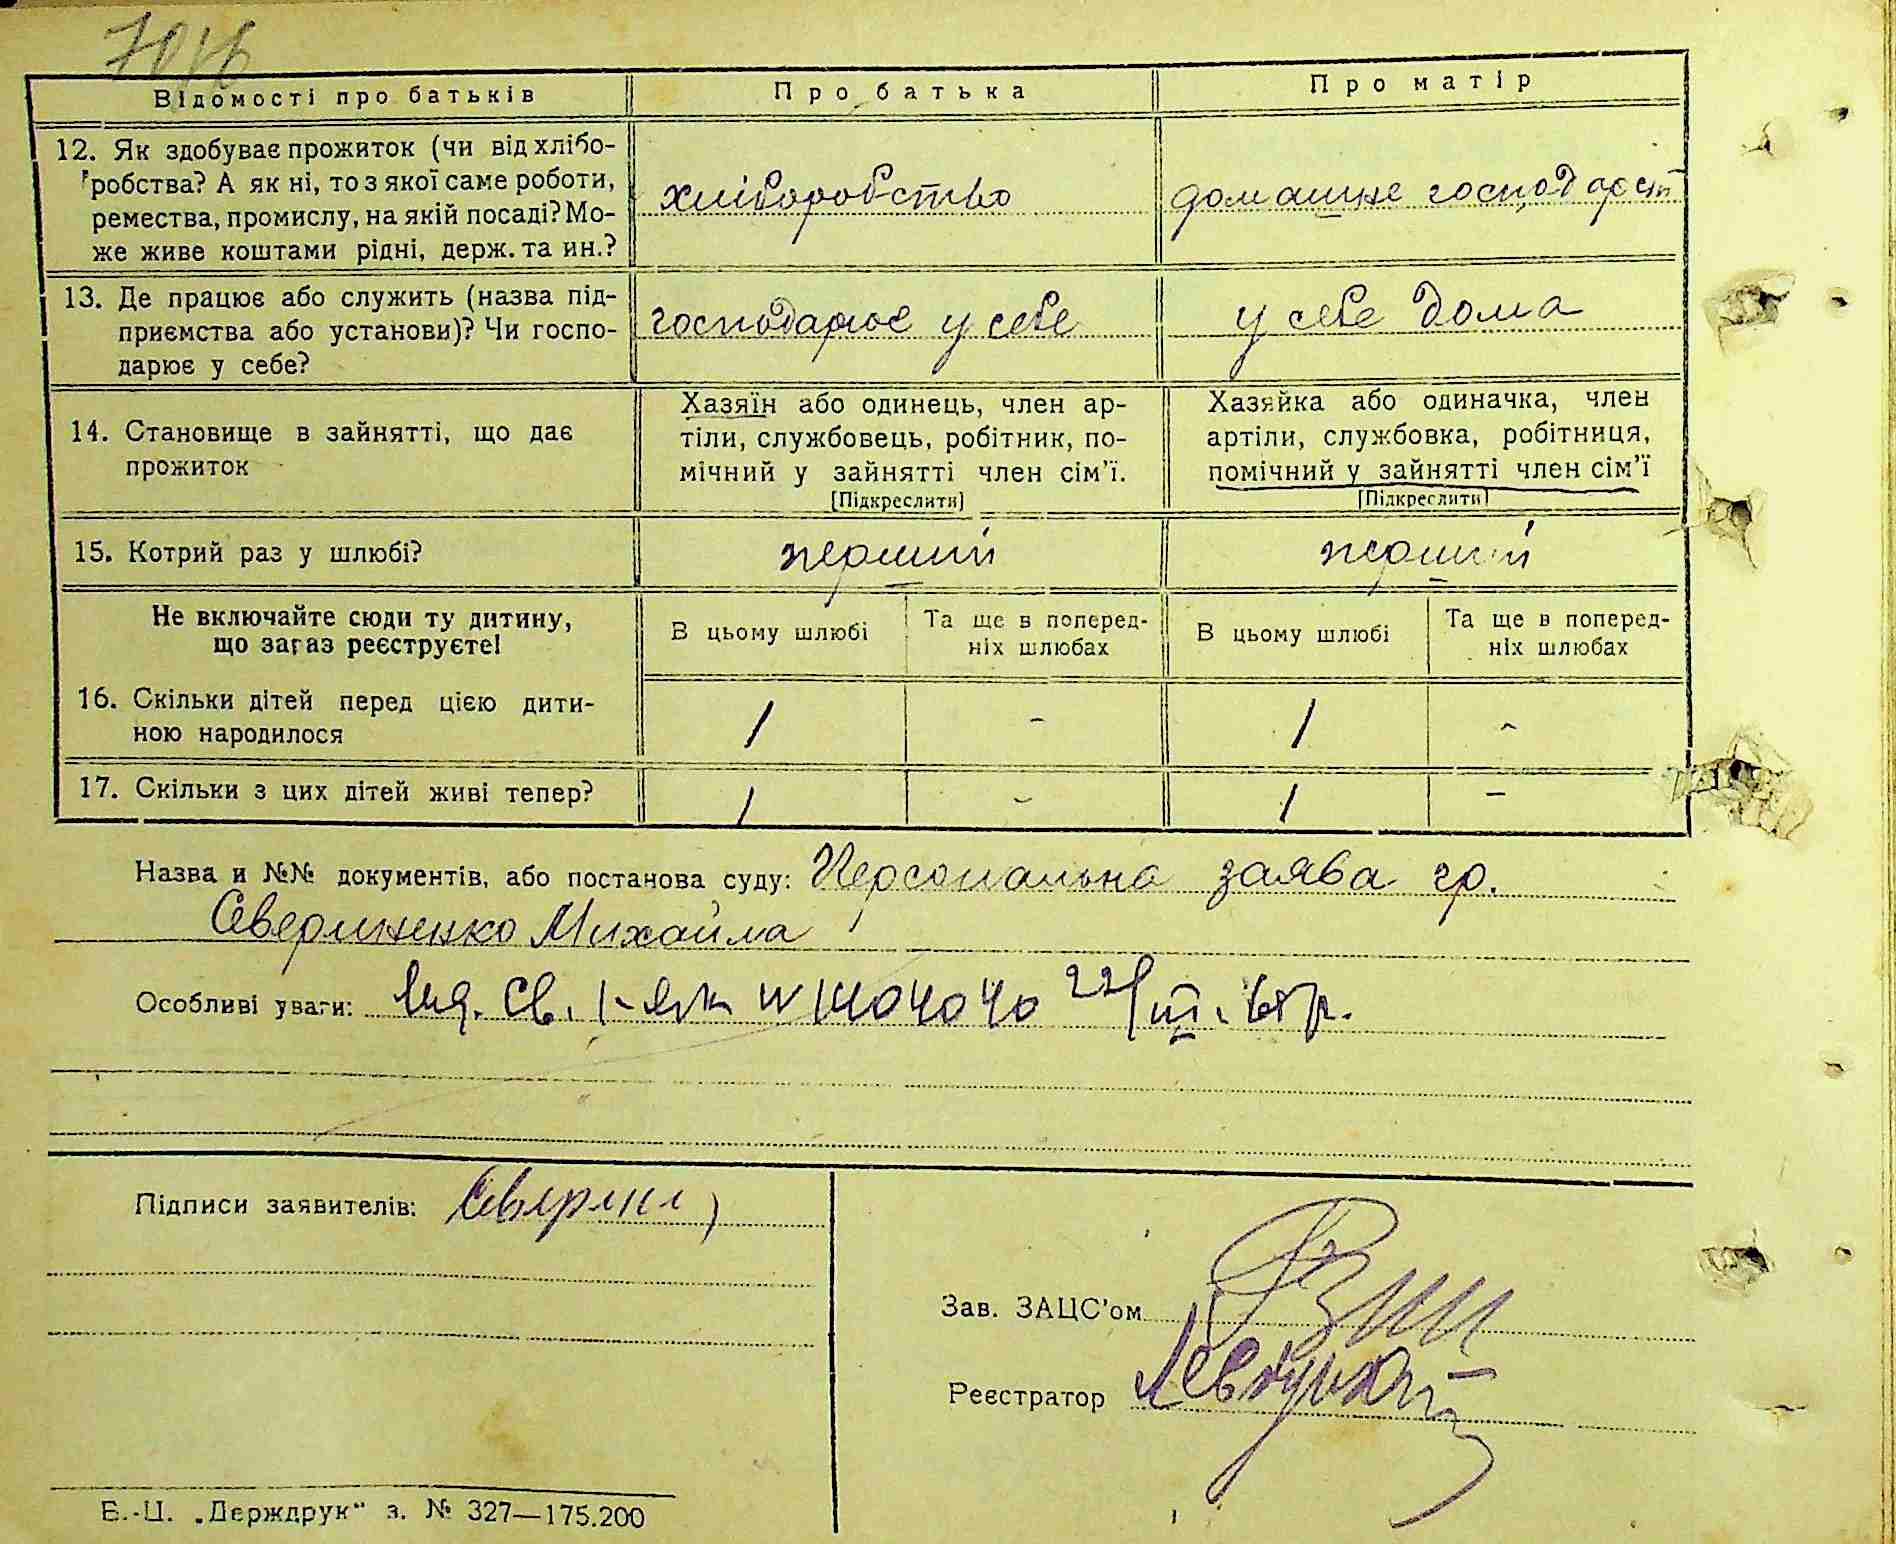 7046
Відомості про батьків
Про батька
Про матір
12. Як здобуває прожиток (чи від хлібо-
робства? А як ні, то з якої саме роботи,
ремества, промислу, на якій посаді? Мо-
же живе коштами рідні, держ. та ин.?
хліборобство
домашнє господарст
13. Де працює або служить (назва під-
приємства або установи)? Чи госпо-
дарює у себе?
господарює у себе
у себе дома
14. Становище в зайнятті, що дає
прожиток
Хазяїн або одинець, член ар-
тіли, службовець, робітник, по-
мічний у зайнятті член сім'ї.
[Підкреслити]
Хазяйка або одиначка, член
артіли, службовка, робітниця,
помічний у зайнятті член сім'ї
[Підкреслити]
15. Котрий раз у шлюбі?
перший
перший
Не включайте сюди ту дитину,
що зараз реєструєте!
В цьому шлюбі
Та ще в поперед-
ніх шлюбах
В цьому шлюбі
Та ще в поперед-
ніх шлюбах
16. Скільки дітей перед цією дити-
ною народилося
1 - 1 -
17. Скільки з цих дітей живі тепер?
1 - 1 -
Назва и №№ документів, або постанова суду: Персональна заява гр.
Севериненко Михайла
Особливі уваги: св. І-ЯЛ №
Підписи заявителів:
Зав. ЗАЦС'ом
Реєстратор
Б.-Ц. „Держдрук" з. № 327—175.200